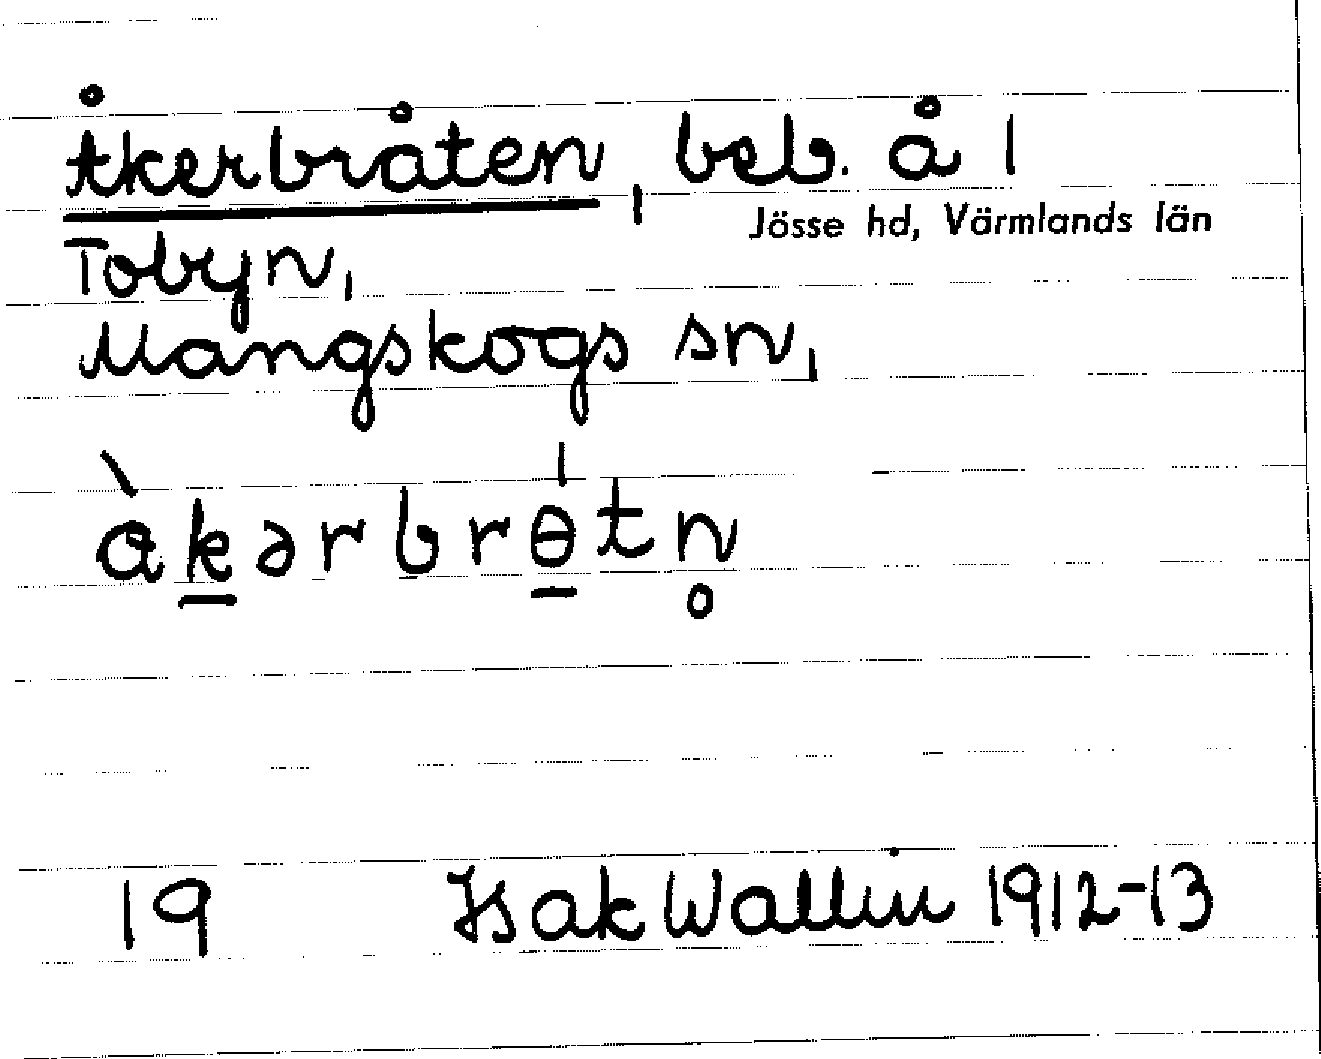 Åkerbråten, beb. å 1
Jösse hd, Värmlands län
Tobyn,
Mangskogs sn,
àkərbrɵ́tn̥
19 Isak Wallin 1912-13